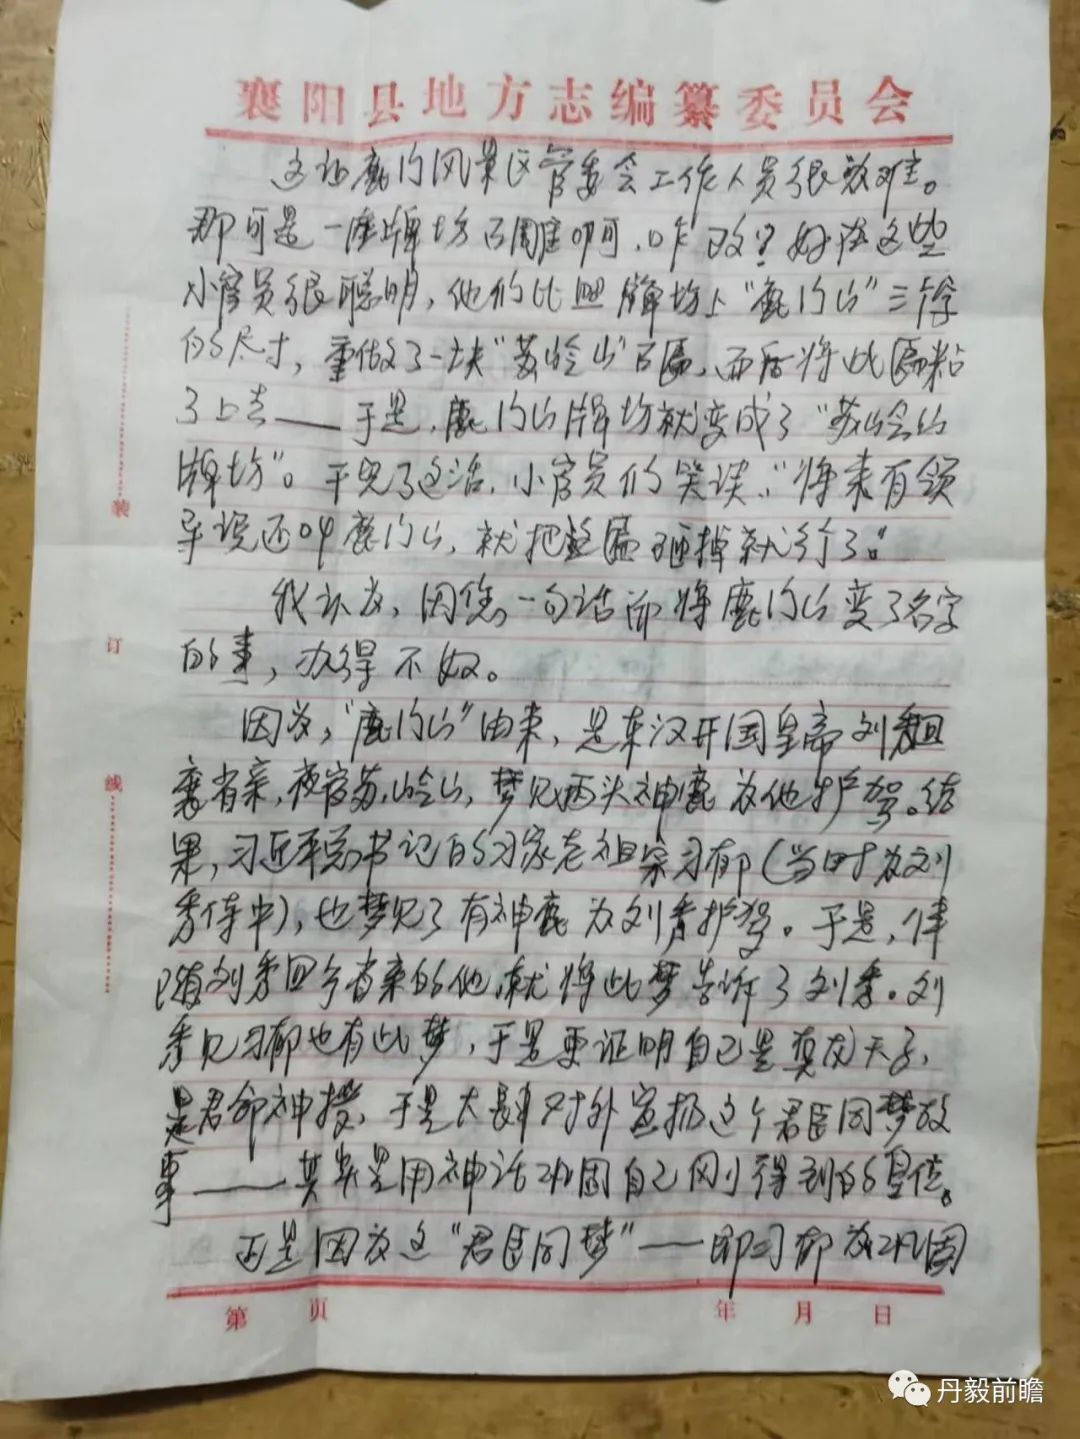 襄阳县地方志编纂委员会
这让鹿门风景区管委会工作人员很为难。
那可是一座牌坊石雕啊，咋改？好在这些
小官员很聪明，他们比照牌坊上“鹿门山”三字
的尺寸，重做了一块“苏岭山”石匾，而后将此匾粘
了上去——于是，鹿门山牌坊就变成了“苏岭山
牌坊”。干完了这活，小官员们笑谈：“将来有领
导说还叫鹿门山，就把这匾砸掉就行了。”
我认为，因您一句话而将鹿门山变了名字
的事，办得不妥。
因为，“鹿门山”由来，是东汉开国皇帝刘秀回
襄省亲，夜宿苏岭山，梦见两头神鹿为他护驾。结
果，习近平总书记的习家老祖宗习郁（当时为刘
秀侍中），也梦见了有神鹿为刘秀护驾。于是，伴
随刘秀回乡省亲的他，就将此梦告诉了刘秀。刘
秀见习郁也有此梦，于是更证明自己是真龙天子，
是君命神授，于是大肆对外宣扬这个君臣同梦故
事——其实是用神话巩固自己刚得到的皇位。
正是因为这“君臣同梦”——即习郁为巩固
装
订
线
第 页
年 月 日
丹毅前瞻